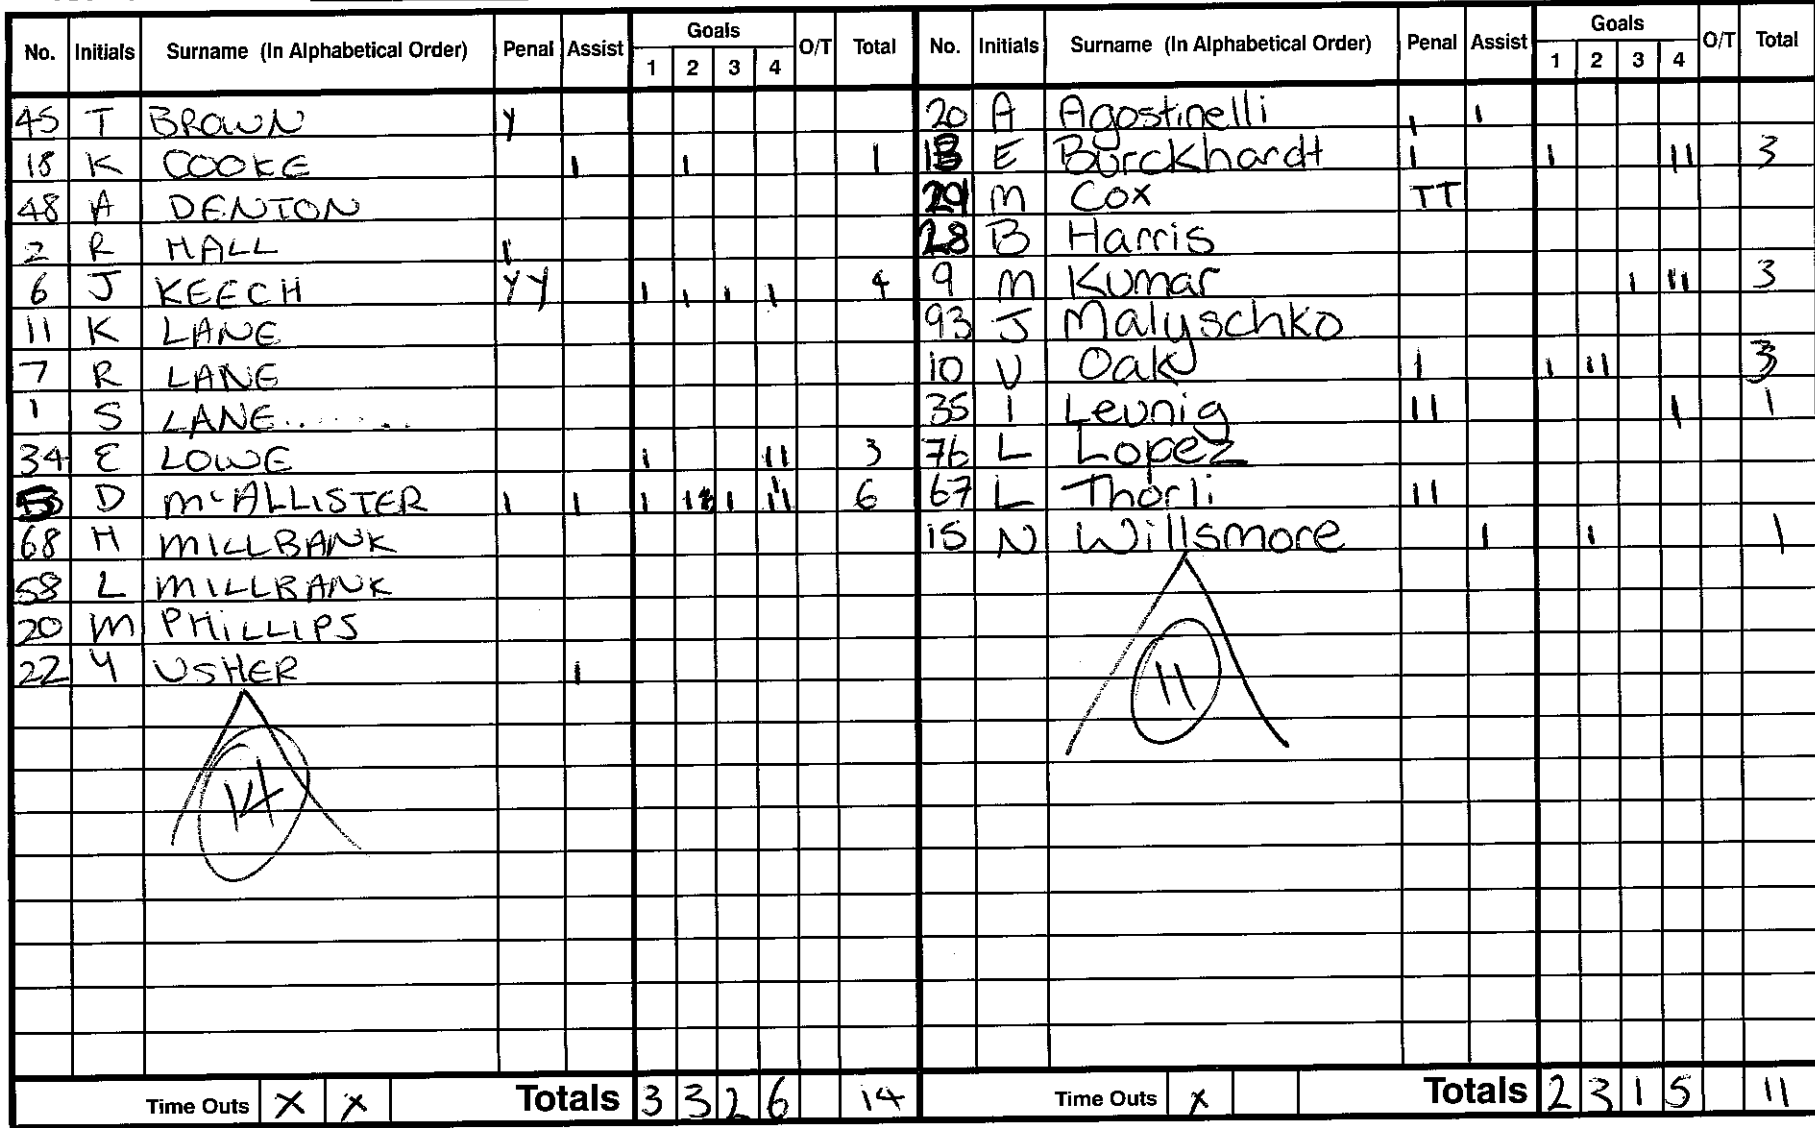 No. Initials Surname (In Alphabetical Order) Penal Assist Goals 1 2 3 4 O/T Total
45 T BROWN Y
18 K COOKE I I 1
48 A DENTON
2 R HALL I
6 J KEECH YY I I I I 4
11 K LANE
7 R LANE
1 S LANE........
34 E LOWE I II 3
D McALLISTER I I I I 6
68 H MILLBANK
58 L MILLBANK
20 M PHILLIPS
22 Y USHER I
14
Time Outs X X Totals 3 3 2 6 14
No. Initials Surname (In Alphabetical Order) Penal Assist Goals 1 2 3 4 O/T Total
20 A Agostinelli I I
E Burckhardt I I II 3
M Cox TT
28 B Harris
9 M Kumar I II 3
93 J Malyschko
10 U Oak I I II 3
35 I Leunig II I 1
76 L Lopez
67 L Thorli II
15 N Willsmore I I 1
11
Time Outs X Totals 2 3 1 5 11